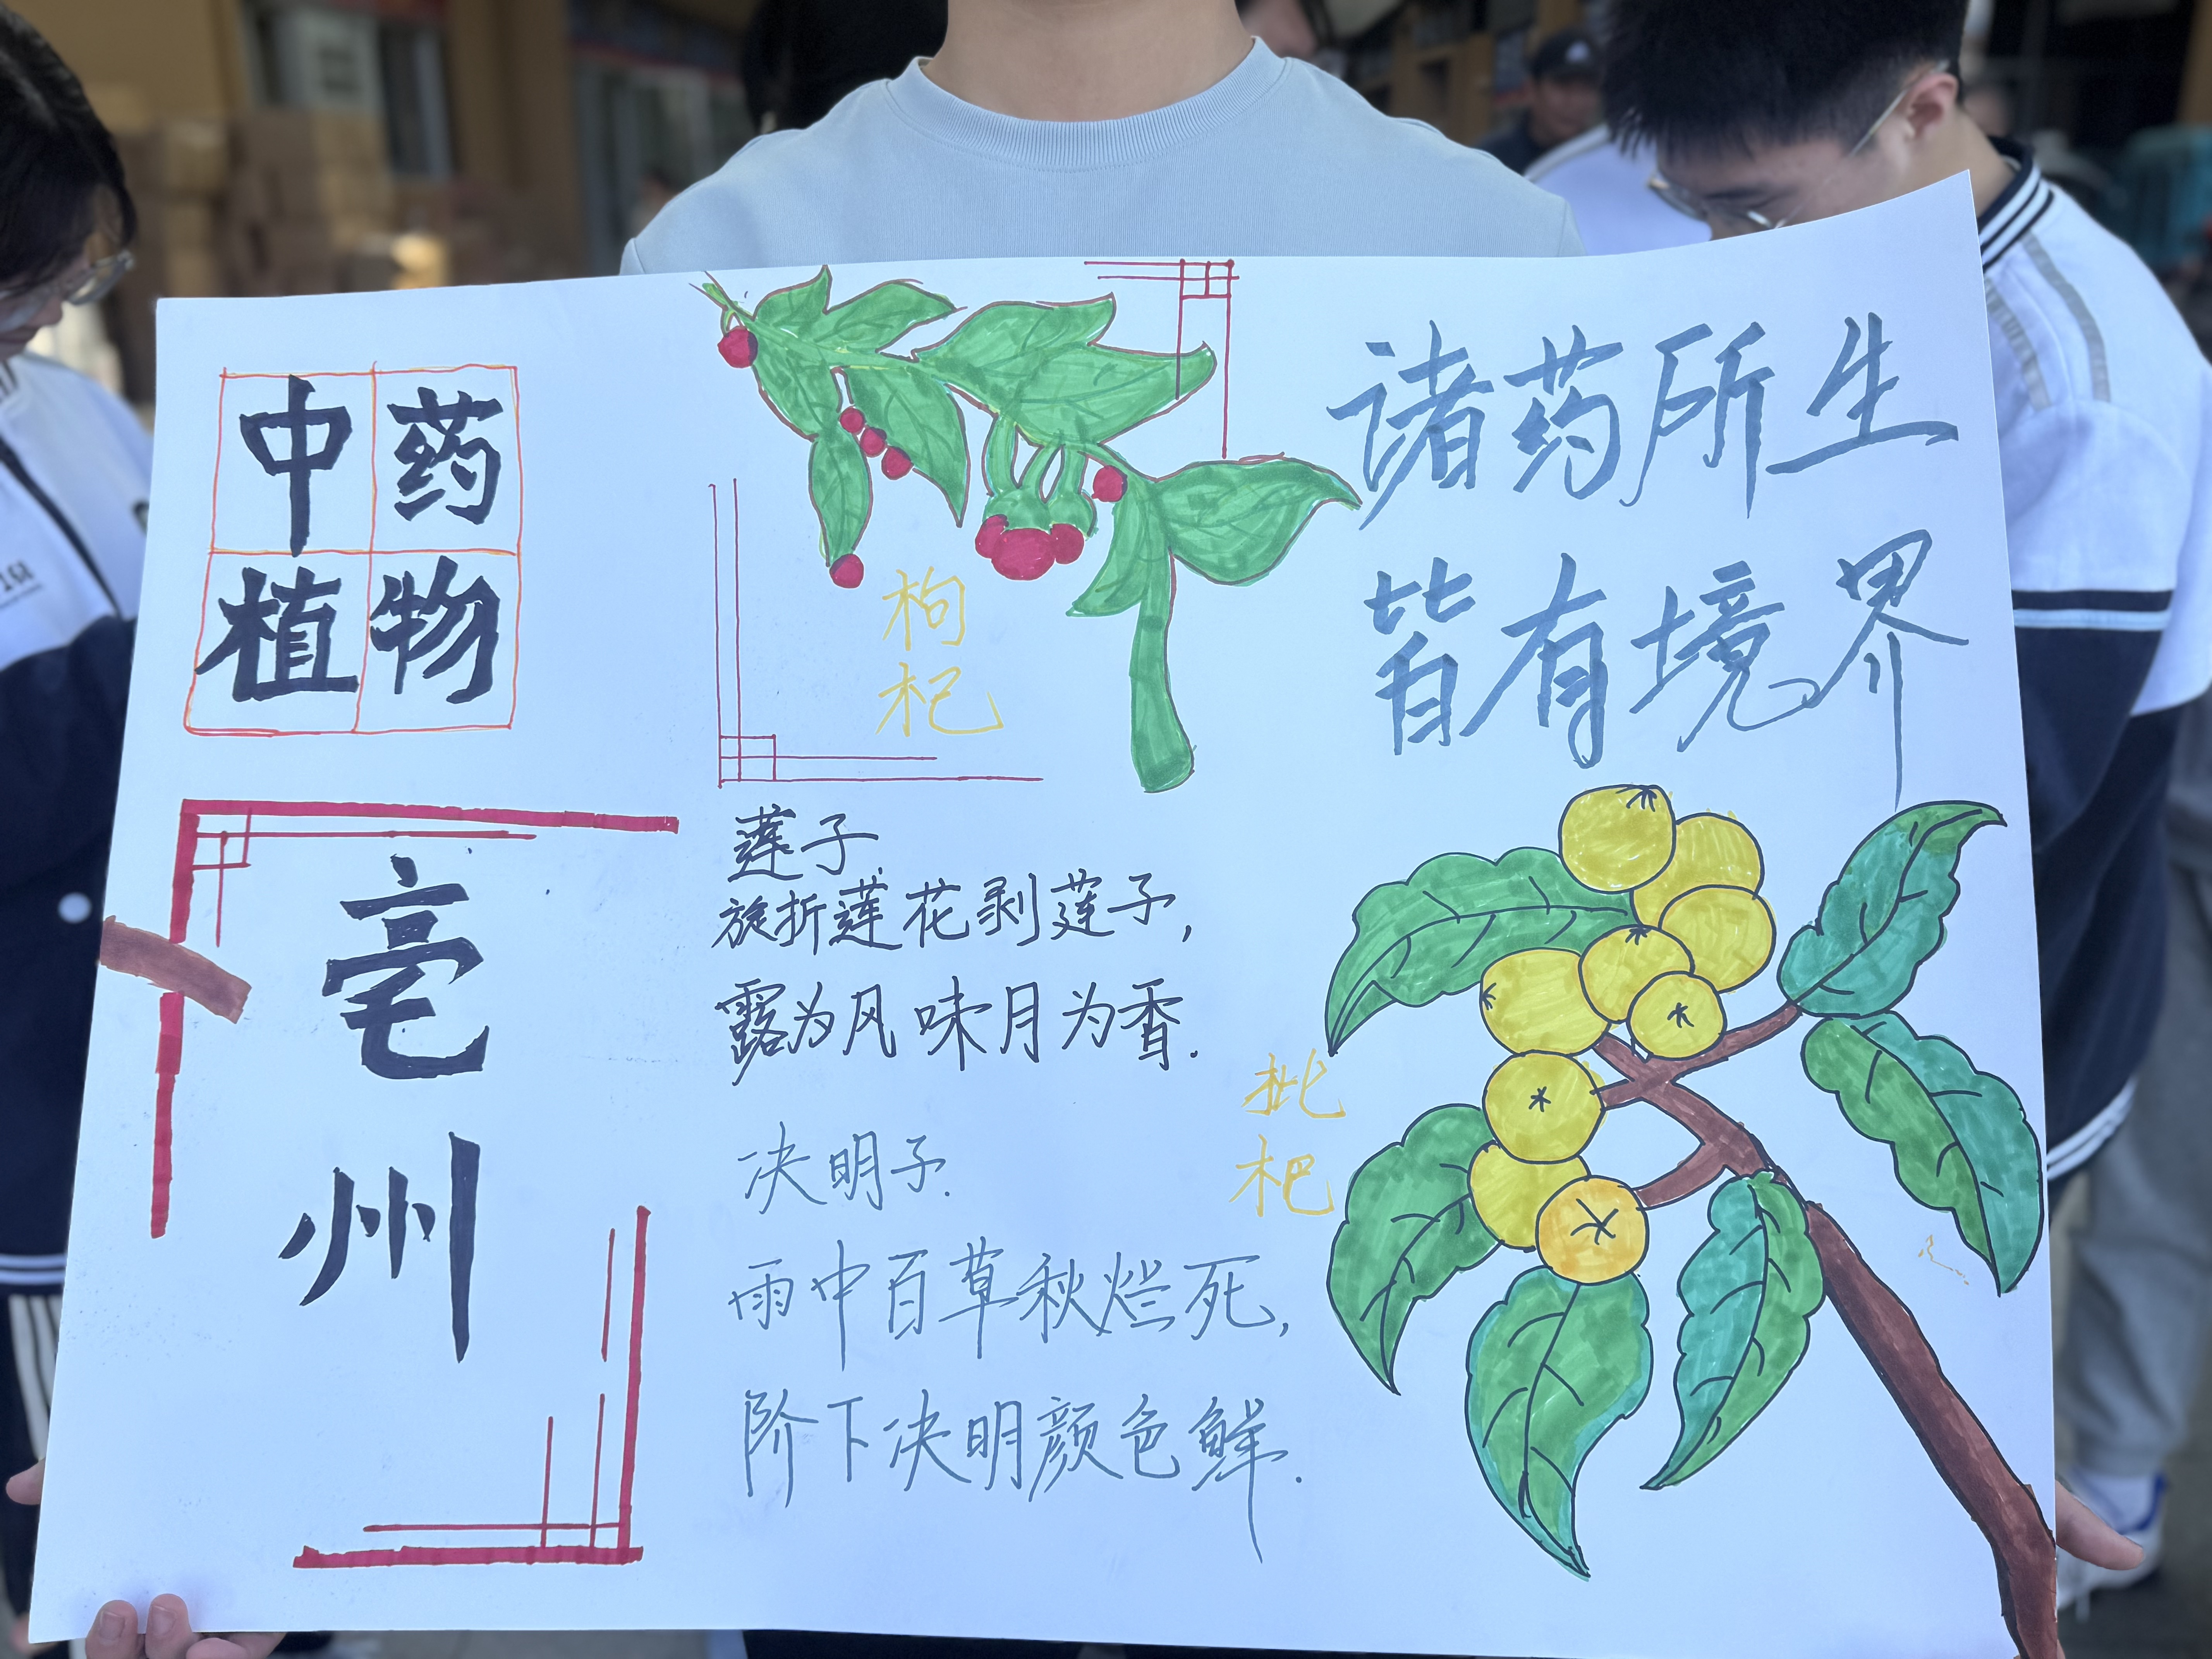 中药
植物
亳
州
枸
杞
诸药所生
皆有境界
莲子
旋折莲花剥莲子，
露为风味月为香.
决明子.
雨中百草秋烂死，
阶下决明颜色鲜.
枇
杷